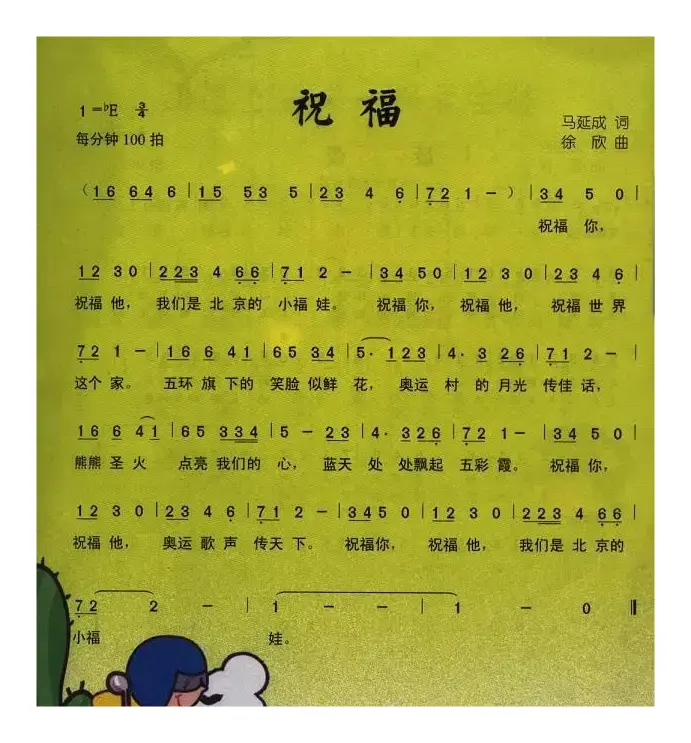 祝福
1=♭E 3/4
每分钟 100 拍
马延成 词
徐 欣 曲
（16 64 6 | 15 53 5 | 23 4 6 | 72 1 －） | 34 5 0 |
祝福 你，
12 3 0 | 223 4 66 | 71 2 － | 34 5 0 | 12 3 0 | 23 4 6 |
祝福 他， 我们是 北 京的 小福 娃。 祝福 你， 祝福 他， 祝福 世 界
72 1 － | 16 6 41 | 65 34 | 5· 123 | 4· 3 26 | 71 2 － |
这个 家。 五环 旗 下的 笑脸 似鲜 花， 奥运 村 的 月光 传佳 话，
16 6 41 | 65 334 | 5 － 23 | 4· 326 | 72 1 － | 34 5 0 |
熊熊 圣 火 点亮 我们的 心， 蓝天 处 处飘起 五彩 霞。 祝福 你，
12 3 0 | 23 4 6 | 71 2 － | 345 0 | 12 3 0 | 223 4 66 |
祝福 他， 奥运 歌 声 传天 下。 祝福你， 祝福 他， 我们是 北 京的
72 2 － | 1 － － | 1 － 0 ‖
小福 娃。